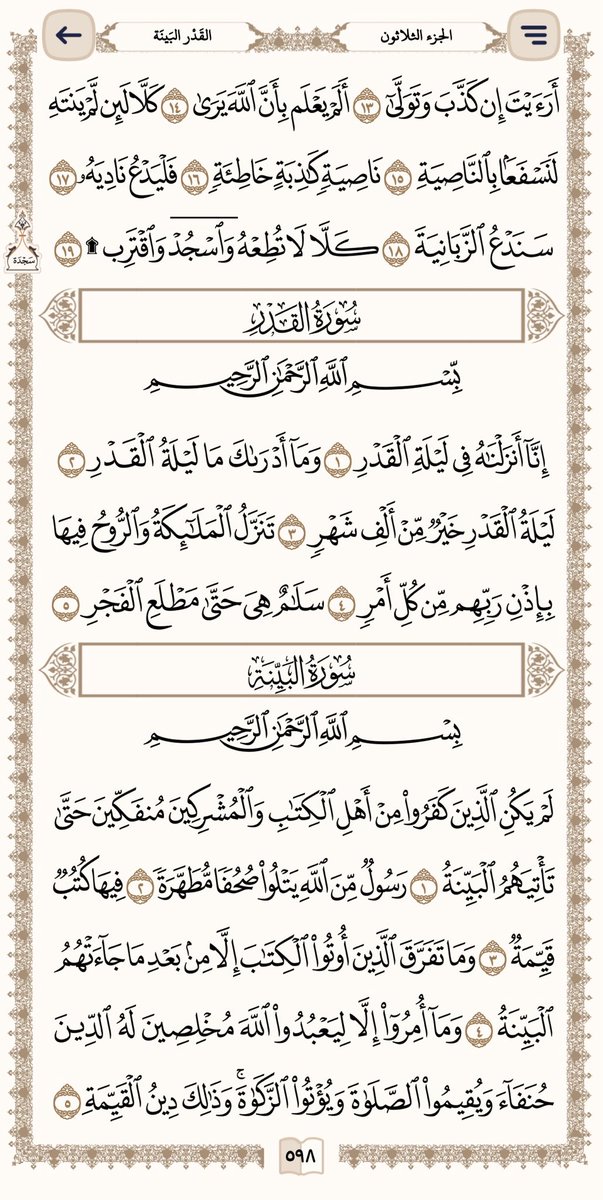 الجزء الثلاثون
القَدْر البَينَة
أَرَءَيۡتَ إِن كَذَّبَ وَتَوَلَّىٰٓ ١٣ أَلَمۡ يَعۡلَم بِأَنَّ ٱللَّهَ يَرَىٰ ١٤ كَلَّا لَئِن لَّمۡ يَنتَهِ
لَنَسۡفَعَۢا بِٱلنَّاصِيَةِ ١٥ نَاصِيَةٖ كَٰذِبَةٍ خَاطِئَةٖ ١٦ فَلۡيَدۡعُ نَادِيَهُۥ ١٧
سَنَدۡعُ ٱلزَّبَانِيَةَ ١٨ كَلَّا لَا تُطِعۡهُ وَٱسۡجُدۡۤ وَٱقۡتَرِب۩ ١٩
سَجْدَة
سُورَةُ القَدْرِ
بِّسۡمِ ٱللَّهِ ٱلرَّحۡمَٰنِ ٱلرَّحِيمِ
إِنَّآ أَنزَلۡنَٰهُ فِي لَيۡلَةِ ٱلۡقَدۡرِ ١ وَمَآ أَدۡرَىٰكَ مَا لَيۡلَةُ ٱلۡقَدۡرِ ٢
لَيۡلَةُ ٱلۡقَدۡرِ خَيۡرٞ مِّنۡ أَلۡفِ شَهۡرٖ ٣ تَنَزَّلُ ٱلۡمَلَٰٓئِكَةُ وَٱلرُّوحُ فِيهَا
بِإِذۡنِ رَبِّهِم مِّن كُلِّ أَمۡرٖ ٤ سَلَٰمٌ هِيَ حَتَّىٰ مَطۡلَعِ ٱلۡفَجۡرِ ٥
سُورَةُ البَيِّنَةِ
بِسۡمِ ٱللَّهِ ٱلرَّحۡمَٰنِ ٱلرَّحِيمِ
لَمۡ يَكُنِ ٱلَّذِينَ كَفَرُواْ مِنۡ أَهۡلِ ٱلۡكِتَٰبِ وَٱلۡمُشۡرِكِينَ مُنفَكِّينَ حَتَّىٰ
تَأۡتِيَهُمُ ٱلۡبَيِّنَةُ ١ رَسُولٞ مِّنَ ٱللَّهِ يَتۡلُواْ صُحُفٗا مُّطَهَّرَةٗ ٢ فِيهَا كُتُبٞ
قَيِّمَةٞ ٣ وَمَا تَفَرَّقَ ٱلَّذِينَ أُوتُواْ ٱلۡكِتَٰبَ إِلَّا مِنۢ بَعۡدِ مَا جَآءَتۡهُمُ
ٱلۡبَيِّنَةُ ٤ وَمَآ أُمِرُوٓاْ إِلَّا لِيَعۡبُدُواْ ٱللَّهَ مُخۡلِصِينَ لَهُ ٱلدِّينَ
حُنَفَآءَ وَيُقِيمُواْ ٱلصَّلَوٰةَ وَيُؤۡتُواْ ٱلزَّكَوٰةَۚ وَذَٰلِكَ دِينُ ٱلۡقَيِّمَةِ ٥
٥٩٨